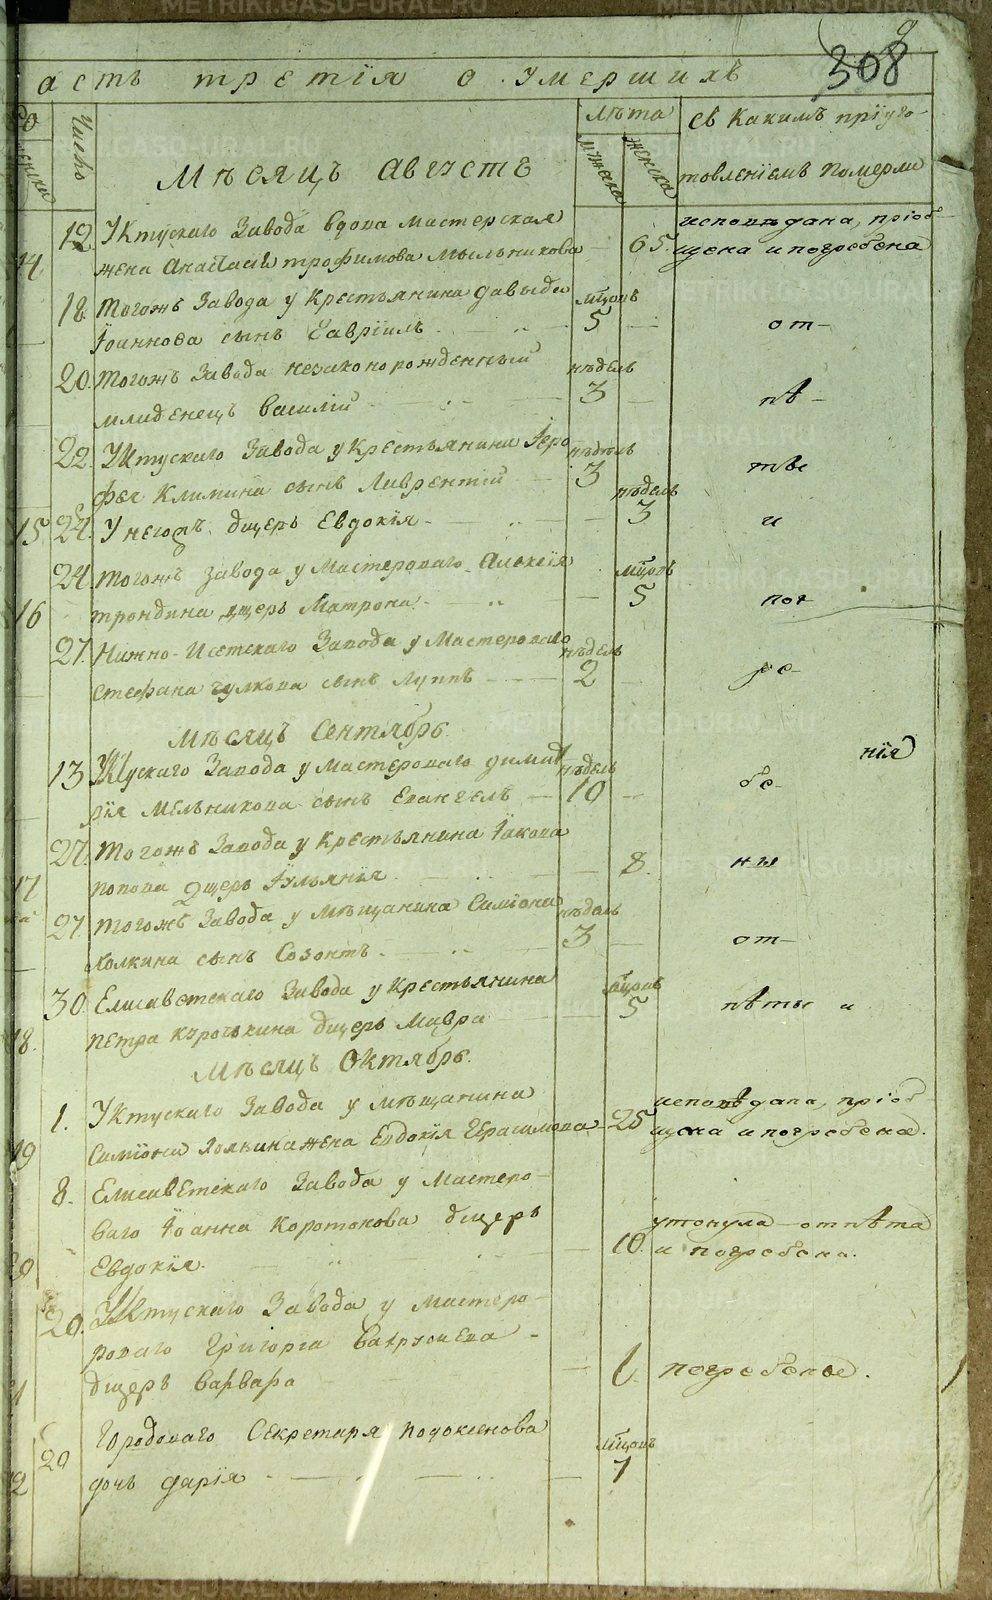 308
асть третїя о умершихъ
Число
лѣта
съ какимъ прїуго-
товленїемъ померли
мужеска
женска
Мѣсяцъ августъ
12 Уктускаго завода вдова мастерская
жена Анастасїя трофимова мыльникова 65
исповѣдана, прїоб-
щена и погребена
14
18. тогожъ завода у крестьянина давыда
Їоаннова сынъ Гаврїилъ
мцовъ 5
от-
20. тогожъ завода незаконорожденный
младенецъ василїй
недѣль 3
пѣ-
22. Уктускаго завода у крестьянина Їеро
фея Климина сынъ Лаврентїй
недѣль 3
тые
15 24. У негожъ дщерь Евдокїя
недѣль 3
и
24 тогожъ завода у Мастероваго Алексїя
дщерь Матрона
мцовъ 5
пог
16
27. Нижно-Исетскаго завода у Мастероваго
Стефана чулкова сынъ Луппъ
недѣль 2
ре-
Мѣсяцъ Сентябрь.
13 Уктускаго завода у мастероваго димит
рїя Мельникова сынъ Евангелъ
недѣль 10
бе-
нїя
27. тогожъ завода у крестьянина Їакова
попова дщерь Їульянїя 8.
ны
17
27. тогожъ завода у мѣщанина Симїона
холкина сынъ Созонтъ
недѣль 3
от-
30. Елисаветскаго завода у крестьянина
петра дщерь Мавра
мцовъ 5
пѣты и
18.
Мѣсяцъ Октябрь.
1. Уктускаго завода у мѣщанина
Симїона холкина жена Евдокїя Герасимова 25
исповѣдана, прїоб
щена и погребена.
19
8. Елисаветскаго завода у мастеро-
ваго Їоанна короткова дщерь
Евдокїя. 10.
утонула отпѣта
и погребена.
20. Уктускаго завода у мастеро-
ваго Григорїя Вахрушева
дщерь варвара 1. погребены.
20 Городоваго Секретаря
дочь дарїя
мцовъ 7
METRIKI.GASU-URAL.RU